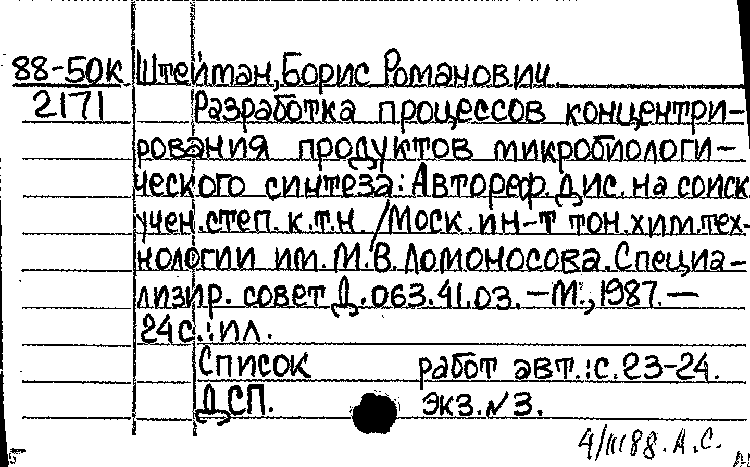 88-50к Штейман, Борис Романович
2171 Разработка процессов концентри-
рования продуктов микробиологи-
ческого синтеза: Автореф. дис. на соиск
учен. степ. к.т.н. /Моск. ин-т тон. хим. тех-
нологии им. М.В. Ломоносова. Специа-
лизир. совет Д.063.41.03. – М., 1987. –
24 с.: ил.
Список работ авт.: с. 23-24.
ДСП. экз. №3.
4/III 88. А.С.